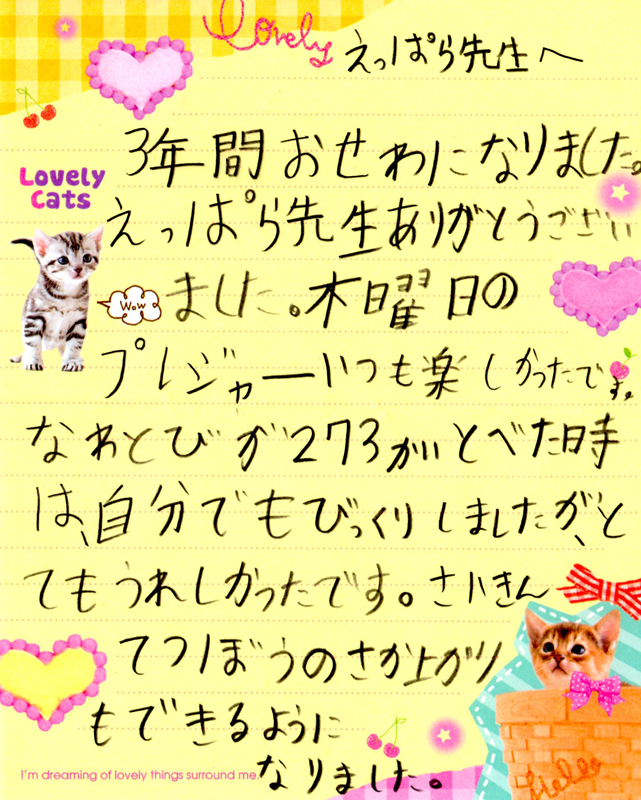 Lovely
えっぱら先生へ
3年間おせわになりました。
Lovely
Cats
えっぱら先生ありがとうござい
Wow
ました。木曜日の
プレジャーいつも楽しかったです。
なわとびが273かいとべた時
は、自分でもびっくりしましたが、と
てもうれしかったです。さいきん
てつぼうのさか上がり
もできるように
なりました。
I'm dreaming of lovely things surround me.
Hello